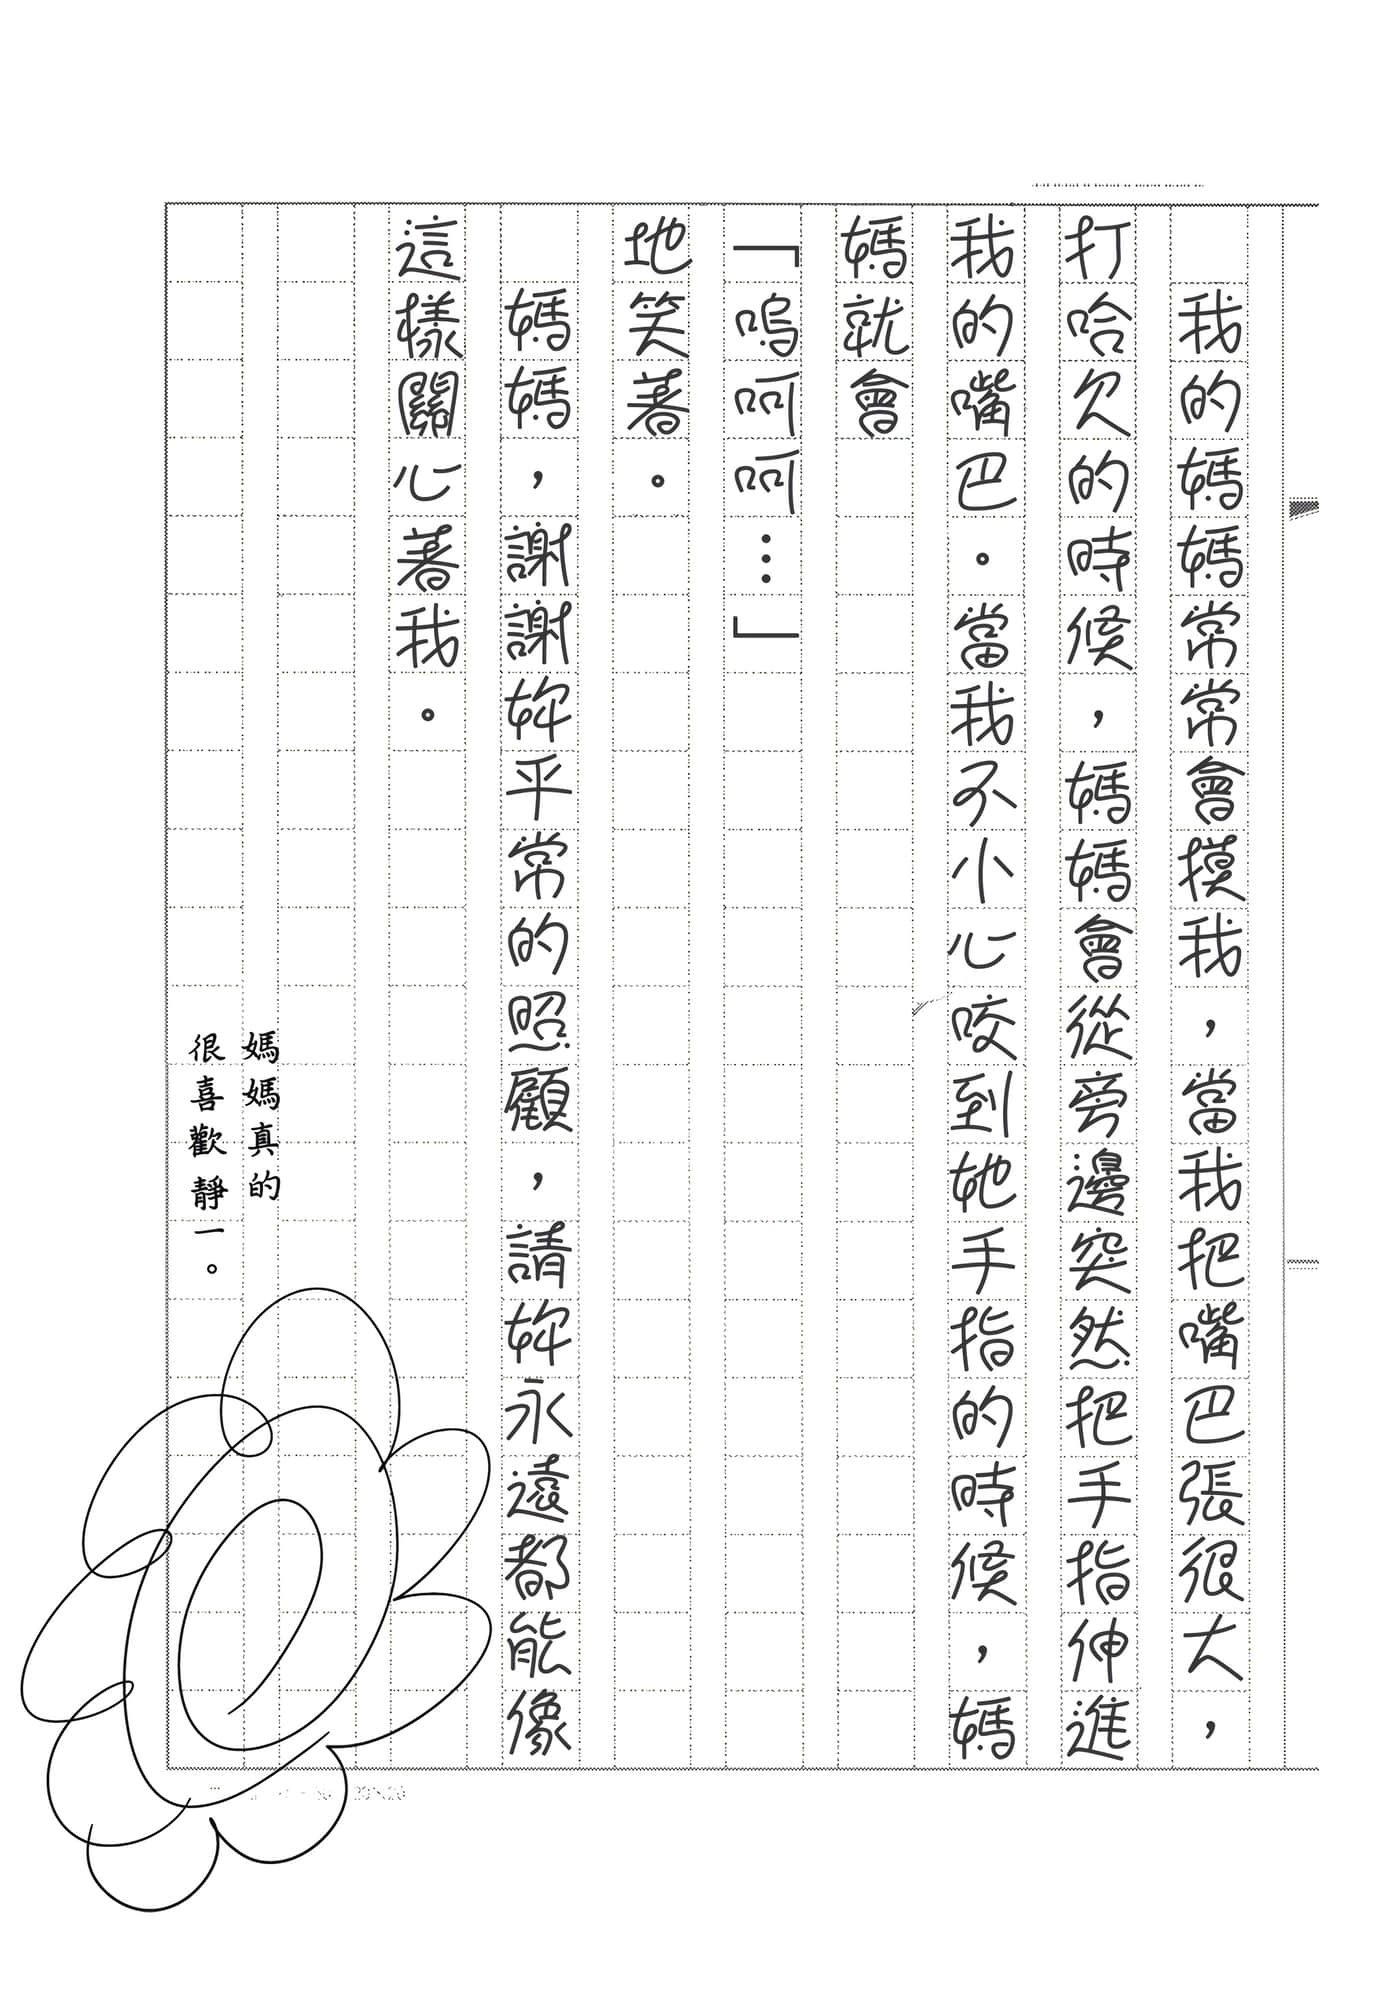 我的媽媽常常會摸我，當我把嘴巴張很大，
打哈欠的時候，媽媽會從旁邊突然把手指伸進
我的嘴巴。當我不小心咬到她手指的時候，媽
媽就會
「嗚呵呵…」
地笑著。
媽媽，謝謝妳平常的照顧，請妳永遠都能像
這樣關心著我。
媽媽真的
很喜歡靜一。